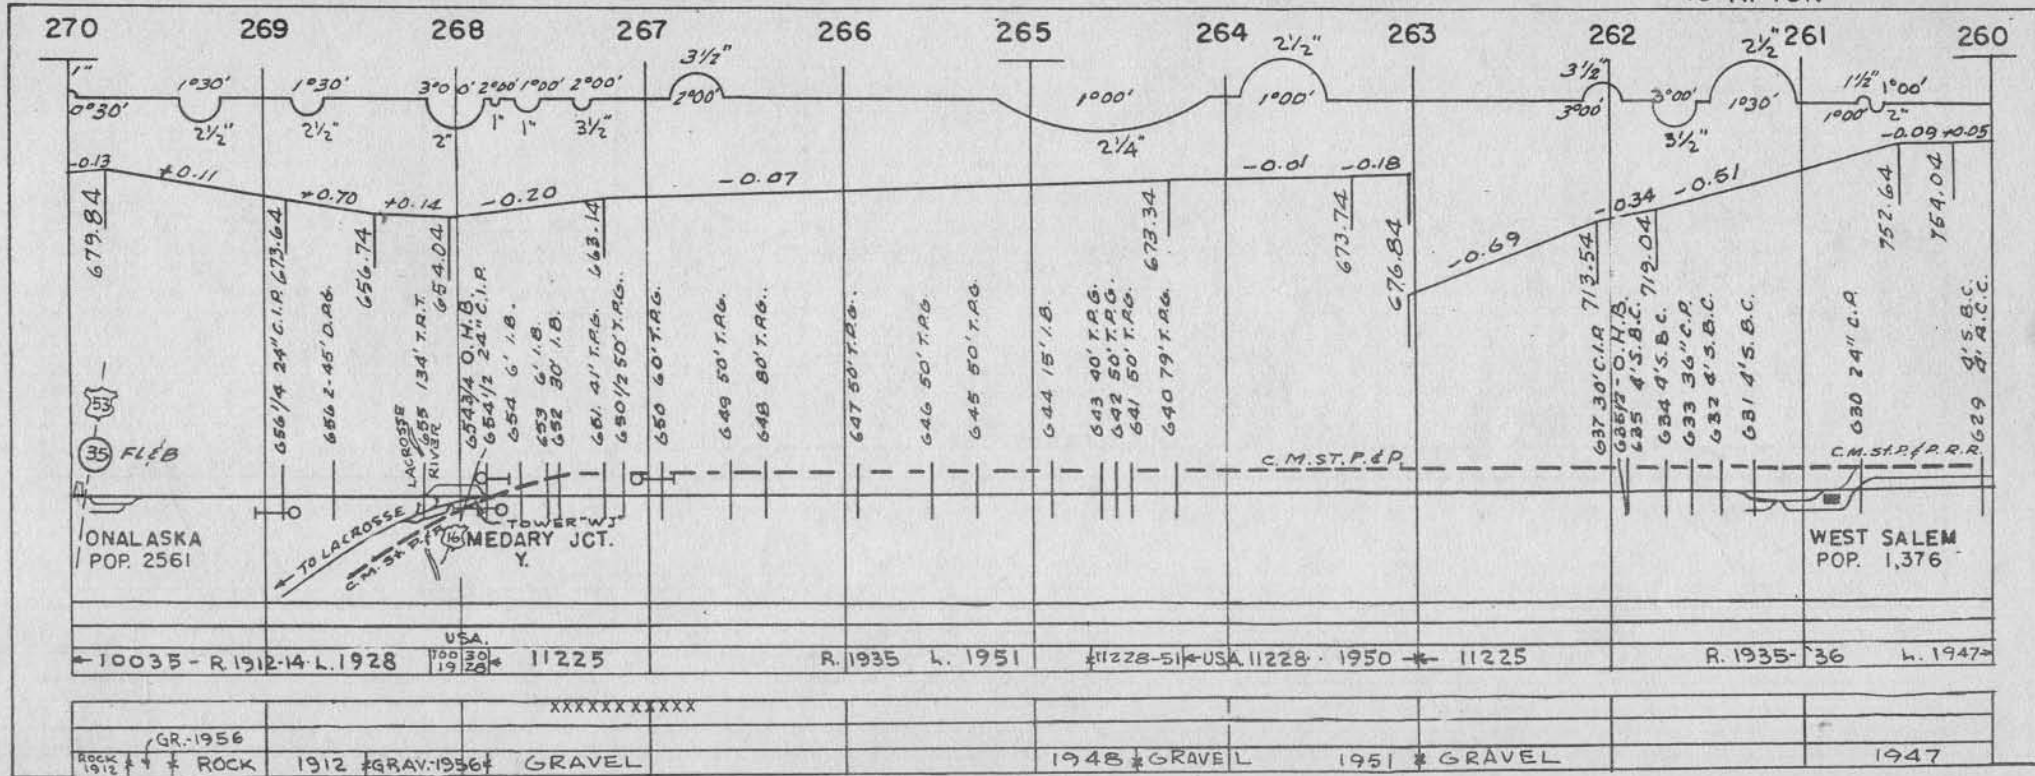 270 269 268 267 266 265 264 263 262 261 260
1" 3½" 2½" 3½" 2½"
0°30' 1°30' 1°30' 3°00' 2°00' 1°00' 2°00' 2°00' 1°00' 1°00' 3°00' 3°00' 1°30' 1½" 1°00' 1°00' 2"
2½" 2½" 2" 1" 1" 3½" 2¼" 3½"
-0.13 +0.11 +0.70 +0.14 -0.20 -0.07 -0.01 -0.18 -0.69 -0.34 -0.51 -0.09 +0.05
679.84
673.64
656.74
654.04
663.14
673.34
673.74
676.84
713.54
719.04
752.64
754.04
656¼ 24" C.I.P.
656 2-45' D.P.G.
LACROSSE RIVER
655 134' T.R.T.
654¾ O.H.B.
654½ 24" C.I.P.
654 6' I.B.
653 6' I.B.
652 30' I.B.
651 41' T.P.G.
650½ 50' T.P.G.
650 60' T.P.G.
649 50' T.P.G.
648 80' T.P.G.
647 50' T.P.G.
646 50' T.P.G.
645 50' T.P.G.
644 15' I.B.
643 40' T.P.G.
642 50' T.P.G.
641 50' T.P.G.
640 79' T.P.G.
637 30" C.I.P.
635½ - O.H.B.
635 4' S.B.C.
634 4' S.B.C.
633 36" C.P.
632 4' S.B.C.
631 4' S.B.C.
630 24" C.P.
629 4' S.B.C.
4' A.C.C.
53
35 FL&B
C.M.ST.P.&P.
C.M.ST.P.& P.R.R.
ONALASKA
POP. 2561
TO LACROSSE
C.M.ST.P.&P.
16
TOWER "WJ"
MEDARY JCT.
Y.
WEST SALEM
POP. 1,376
USA.
10035 - R.1912-14 L.1928 100 30 19 28 11225 R.1935 L. 1951 11228-51 USA 11228 1950 11225 R. 1935-'36 L. 1947
XXXXXXXXXXX
GR.-1956
ROCK 1912 ROCK 1912 GRAV.-1956 GRAVEL 1948 GRAVEL 1951 GRAVEL 1947